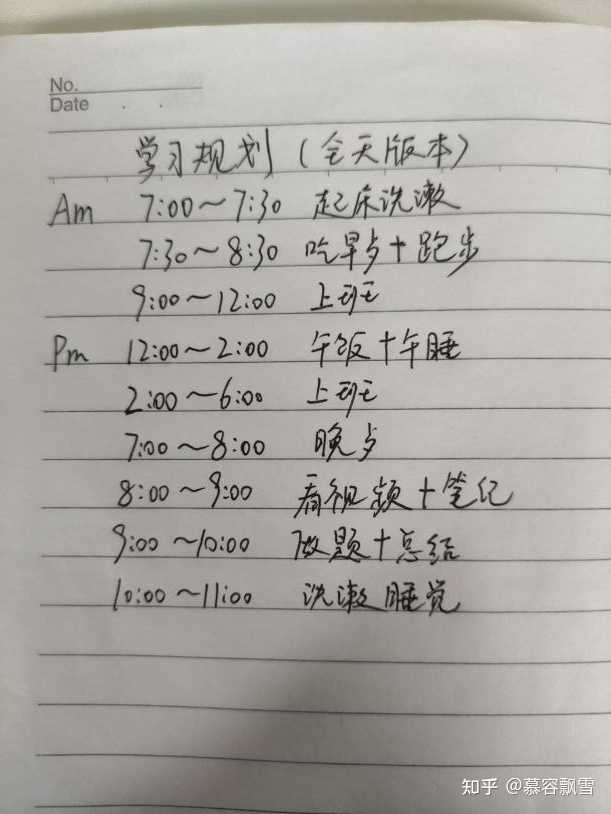 No.
Date
学习规划(全天版本)
Am 7:00~7:30 起床洗漱
7:30~8:30 吃早点+跑步
9:00~12:00 上班
Pm 12:00~2:00 午饭+午睡
2:00~6:00 上班
7:00~8:00 晚点
8:00~9:00 看视频+笔记
9:00~10:00 做题+总结
10:00~11:00 洗漱睡觉
知乎 @慕容飘雪